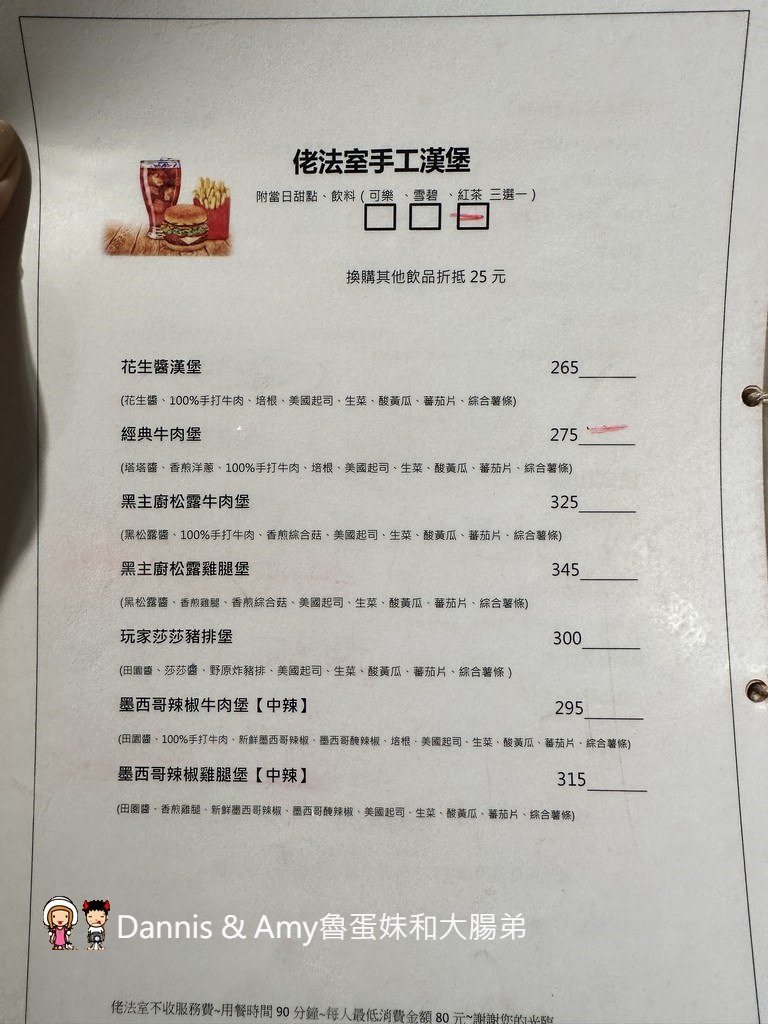 佬法室手工漢堡
附當日甜點、飲料(可樂、雪碧、紅茶 三選一)
換購其他飲品折抵 25 元
花生醬漢堡 265
(花生醬、100%手打牛肉、培根、美國起司、生菜、酸黃瓜、蕃茄片、綜合薯條)
經典牛肉堡 275
(塔塔醬、香煎洋蔥、100%手打牛肉、培根、美國起司、生菜、酸黃瓜、蕃茄片、綜合薯條)
黑主廚松露牛肉堡 325
(黑松露醬、100%手打牛肉、香煎綜合菇、美國起司、生菜、酸黃瓜、蕃茄片、綜合薯條)
黑主廚松露雞腿堡 345
(黑松露醬、香煎雞腿、香煎綜合菇、美國起司、生菜、酸黃瓜、蕃茄片、綜合薯條)
玩家莎莎豬排堡 300
(田園醬、莎莎醬、野原炸豬排、美國起司、生菜、酸黃瓜、蕃茄片、綜合薯條)
墨西哥辣椒牛肉堡【中辣】 295
(田園醬、100%手打牛肉、新鮮墨西哥辣椒、墨西哥醃辣椒、培根、美國起司、生菜、酸黃瓜、蕃茄片、綜合薯條)
墨西哥辣椒雞腿堡【中辣】 315
(田園醬、香煎雞腿、新鮮墨西哥辣椒、墨西哥醃辣椒、美國起司、生菜、酸黃瓜、蕃茄片、綜合薯條)
Dannis & Amy魯蛋妹和大腸弟
佬法室不收服務費~用餐時間 90 分鐘~每人最低消費金額 80 元~謝謝您的光臨